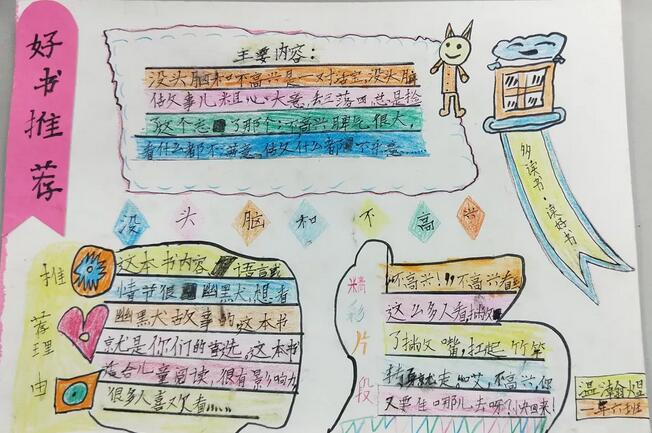 好书推荐
主要内容：
没头脑和不高兴是一对活宝,没头脑
做事儿粗心大意,丢三落四总是捡
了这个忘了那个;不高兴脾气很大,
看什么都不满意,做什么都不乐意……
多读书·读好书
没头脑和不高兴
推荐理由
这本书内容 语言
情节很 幽默大,想看
幽默大故事的,这本书
就是你们的首选,这本书
适合儿童阅读,很有影响力
很多人喜欢看……
精彩片段
"不高兴!"不高兴看
这么多人看,
了 嘴,扛起竹竿
走,哎,不高兴,你
又要往哪儿去呀?快回来!
温瀚
二年六班